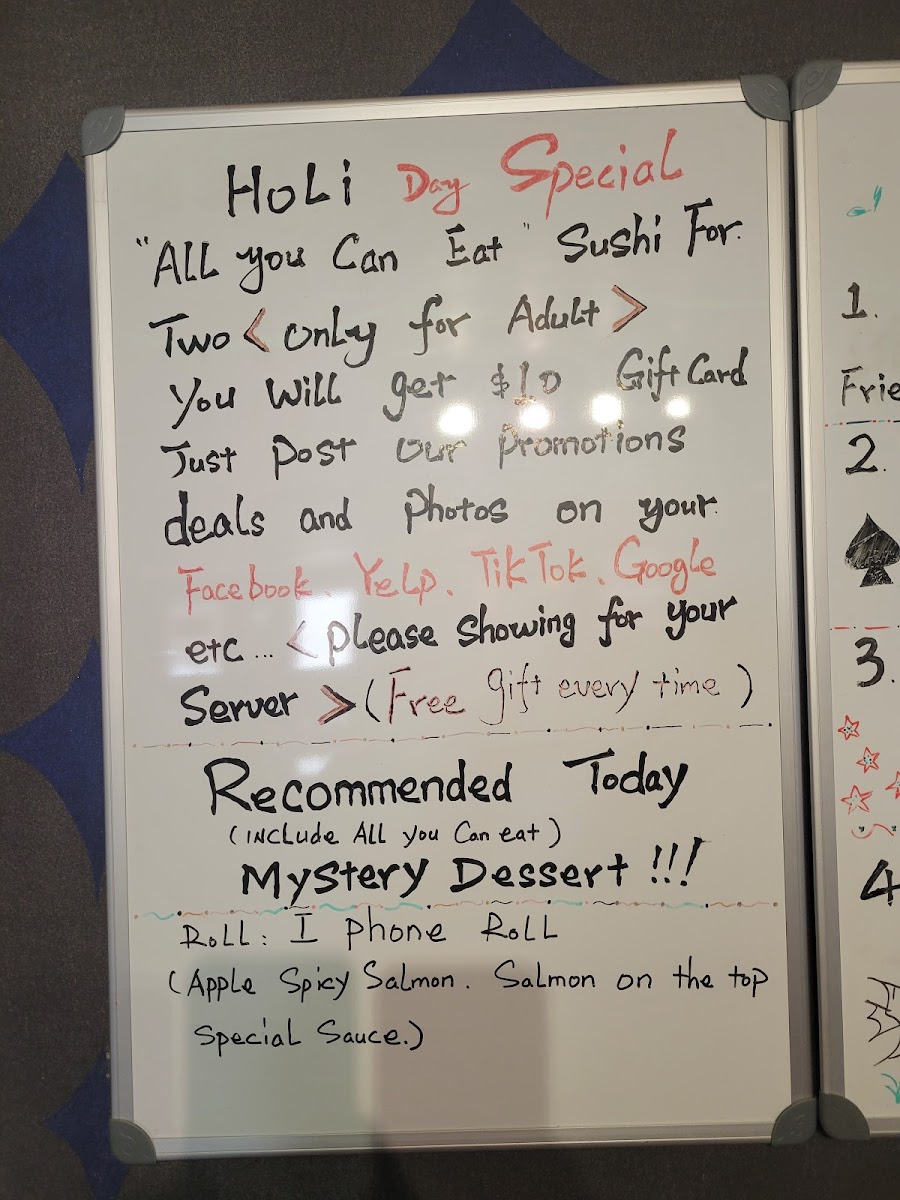 HoLi Day Special
"ALL you Can Eat" Sushi For.
Two < only for Adult >
You Will get $10 Gift Card
Just post our promotions
deals and photos on your.
Facebook. Yelp. TikTok. Google
etc... < please showing for your
Server > (Free gift every time)
Recommended Today
(INCLude ALL you Can eat)
Mystery Dessert !!!
RoLL: I phone RoLL
(Apple Spicy Salmon. Salmon on the top
Special Sauce.)
1.
Frie
2.
3.
4